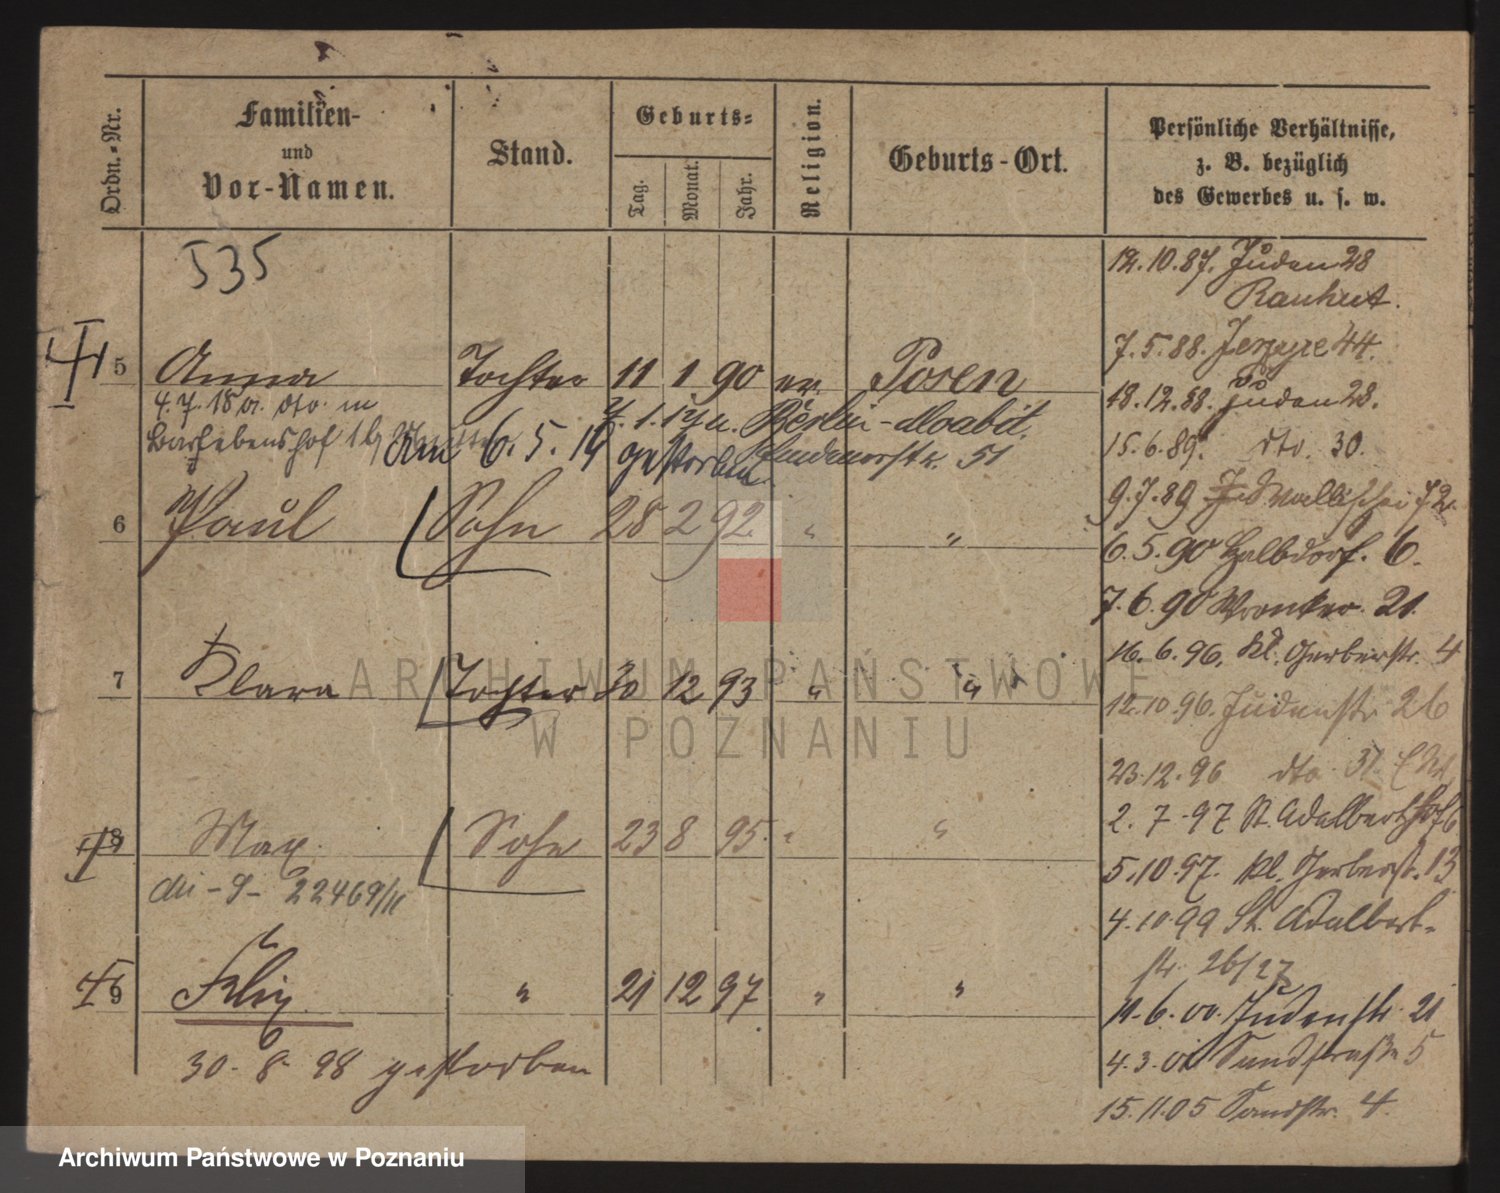 Ordn.-Nr.
Familien-
und
Vor-Namen.
Stand.
Geburts-
Tag.
Monat.
Jahr.
Religion.
Geburts-Ort.
Persönliche Verhältnisse,
z. B. bezüglich
des Gewerbes u. s. w.
535
12.10.87. Juden 28
Rauhut.
7.5.88. Jerzyce 44.
5 Anna Tochter 11 1 90 ev. Posen
18.12.88. Juden 28.
4.7.18 a. dto. in
7.1.14 u. Berlin-Moabit,
15.6.89. dto. 30.
Am 6.5.14 gestorben.
51
9.7.89 Wallischei 72.
6 Paul Sohn 28 2 92 " "
6.5.90 Halbdorf. 6.
7.6.90 Wronker. 21.
16.6.96. Kl. Gerberstr. 4
7 Klara Tochter 30 12 93 " "
12.10.96. Judenstr 26
ARCHIWUM PAŃSTWOWE
W POZNANIU
23.12.96 dto. 31.
2.7.97 St. Adalbert
8 Max Sohn 23 8 95. " "
5.10.97. Kl. Gerberst. 13
22469/
4.10.99 St. Adalbert-
str. 26/27
9 Felix " 21 12 97 " "
11.6.00. Judenstr. 21
30.8.98 gestorben
4.3.01 Sandstraße 5
15.11.05 Sandstr. 4.
Archiwum Państwowe w Poznaniu